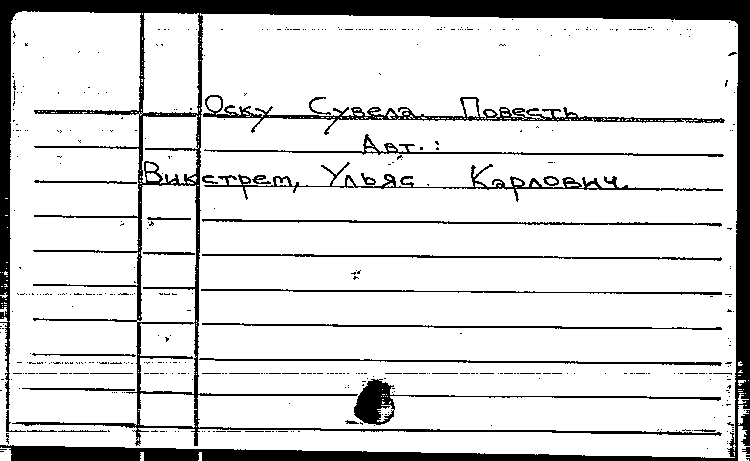 Оску Сувела. Повесть.
Авт.:
Викстрем, Ульяс Карлович.